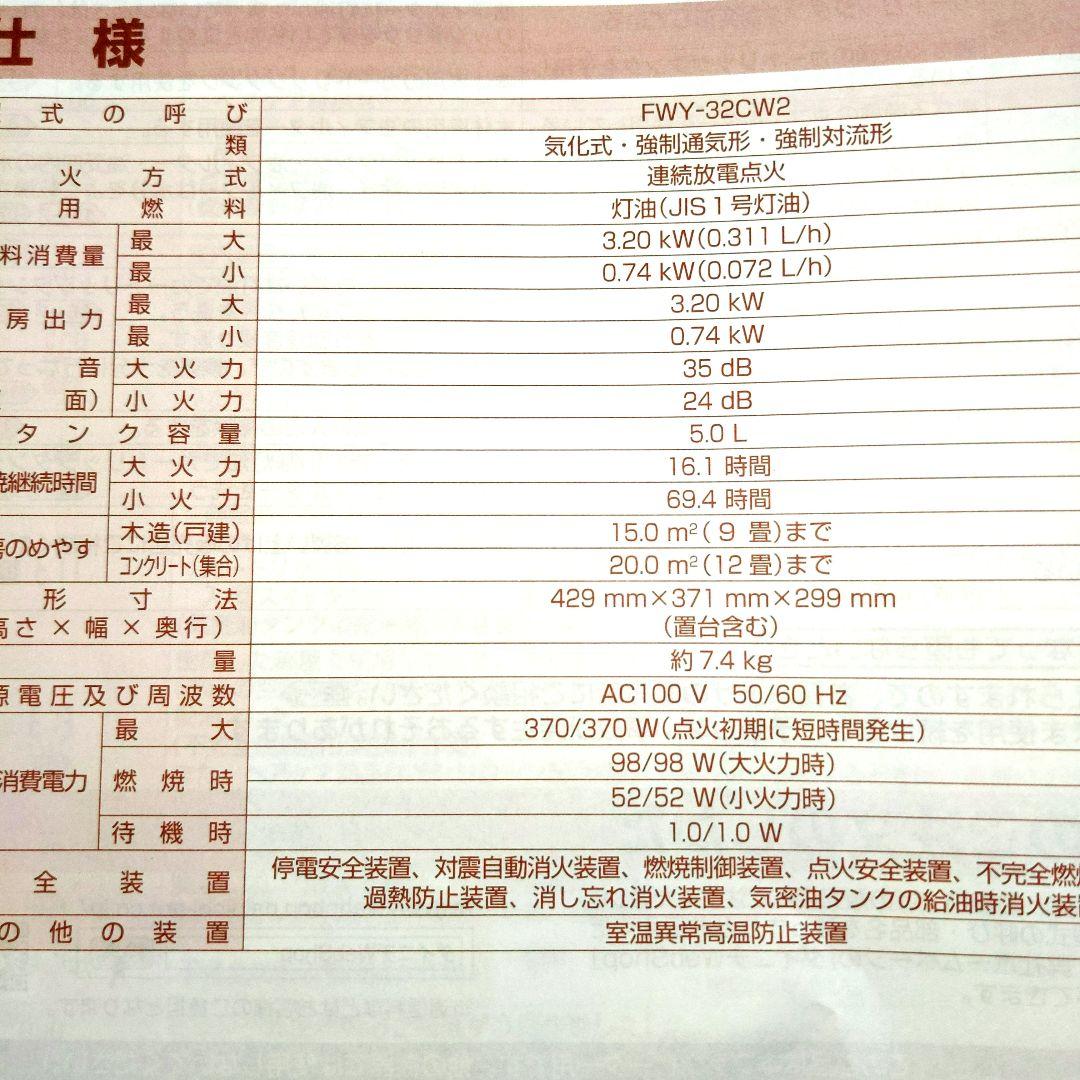 仕様
式の呼び FWY-32CW2
類 気化式・強制通気形・強制対流形
火方式 連続放電点火
用燃料 灯油(JIS1号灯油)
料消費量 最大 3.20 kW(0.311 L/h)
最小 0.74 kW(0.072 L/h)
房出力 最大 3.20 kW
最小 0.74 kW
音 大火力 35 dB
面) 小火力 24 dB
タンク容量 5.0 L
焼継続時間 大火力 16.1 時間
小火力 69.4 時間
房のめやす 木造(戸建) 15.0 m²( 9 畳)まで
コンクリート(集合) 20.0 m²(12 畳)まで
形寸法 429 mm×371 mm×299 mm
高さ×幅×奥行) (置台含む)
量 約7.4 kg
源電圧及び周波数 AC100 V 50/60 Hz
消費電力 最大 370/370 W(点火初期に短時間発生)
燃焼時 98/98 W(大火力時)
52/52 W(小火力時)
待機時 1.0/1.0 W
全装置 停電安全装置、対震自動消火装置、燃焼制御装置、点火安全装置、不完全燃焼
過熱防止装置、消し忘れ消火装置、気密油タンクの給油時消火装置
の他の装置 室温異常高温防止装置